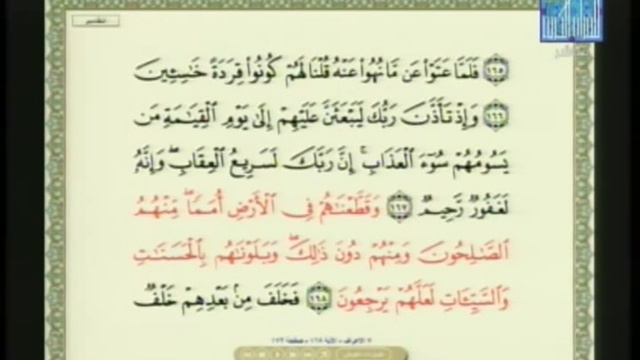 التفسير
مباشر
١٦٥ فَلَمَّا عَتَوْا۟ عَن مَّا نُهُوا۟ عَنْهُ قُلْنَا لَهُمْ كُونُوا۟ قِرَدَةً خَـٰسِـِٔينَ
١٦٦ وَإِذْ تَأَذَّنَ رَبُّكَ لَيَبْعَثَنَّ عَلَيْهِمْ إِلَىٰ يَوْمِ ٱلْقِيَـٰمَةِ مَن
يَسُومُهُمْ سُوٓءَ ٱلْعَذَابِ ۗ إِنَّ رَبَّكَ لَسَرِيعُ ٱلْعِقَابِ ۖ وَإِنَّهُۥ
لَغَفُورٌ رَّحِيمٌ ١٦٧ وَقَطَّعْنَـٰهُمْ فِى ٱلْأَرْضِ أُمَمًا ۖ مِّنْهُمُ
ٱلصَّـٰلِحُونَ وَمِنْهُمْ دُونَ ذَٰلِكَ ۖ وَبَلَوْنَـٰهُم بِٱلْحَسَنَـٰتِ
وَٱلسَّيِّـَٔاتِ لَعَلَّهُمْ يَرْجِعُونَ ١٦٨ فَخَلَفَ مِنۢ بَعْدِهِمْ خَلْفٌ
٧ الأعراف - الآية ١٦٨ - صفحة ١٧٢